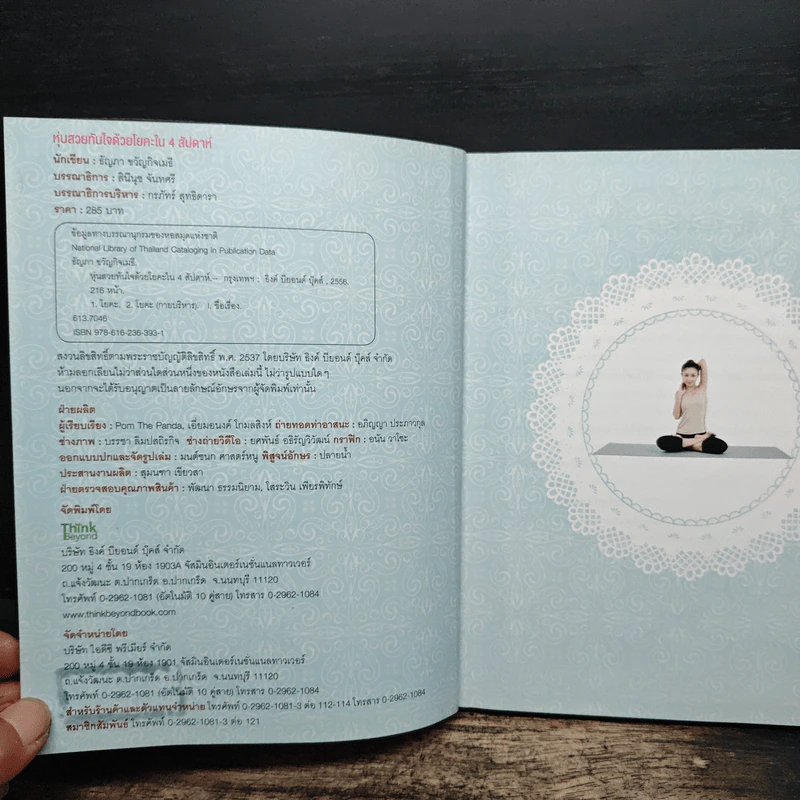 หุ่นสวยทันใจด้วยโยคะใน 4 สัปดาห์
นักเขียน : ธัญภา ขวัญกิจเมธี
บรรณาธิการ : ลินินุช จันทศรี
บรรณาธิการบริหาร : กรภัทร์ สุทธิดารา
ราคา : 285 บาท
ข้อมูลทางบรรณานุกรมของหอสมุดแห่งชาติ
National Library of Thailand Cataloging in Publication Data
ธัญภา ขวัญกิจเมธี.
หุ่นสวยทันใจด้วยโยคะใน 4 สัปดาห์.-- กรุงเทพฯ : ธิงค์ บียอนด์ บุ๊คส์ , 2556.
216 หน้า.
1. โยคะ. 2. โยคะ (กายบริหาร). I. ชื่อเรื่อง.
613.7046
ISBN 978-616-236-393-1
สงวนลิขสิทธิ์ตามพระราชบัญญัติลิขสิทธิ์ พ.ศ. 2537 โดยบริษัท ธิงค์ บียอนด์ บุ๊คส์ จำกัด
ห้ามลอกเลียนไม่ว่าส่วนใดส่วนหนึ่งของหนังสือเล่มนี้ ไม่ว่ารูปแบบใดๆ
นอกจากจะได้รับอนุญาตเป็นลายลักษณ์อักษรจากผู้จัดพิมพ์เท่านั้น
ฝ่ายผลิต
ผู้เรียบเรียง : Pom The Panda, เอี่ยมอนงค์ โกมลสิงห์ ถ่ายทอดท่าอาสนะ : อภิญญา ประภาวกุล
ช่างภาพ : บรรชา ลิมปสถิรกิจ ช่างถ่ายวิดีโอ : ยศพันธ์ อธิรัญวิวัฒน์ กราฟิก : อนัน วาโซะ
ออกแบบปกและจัดรูปเล่ม : มนต์ชนก ศาสตร์หนู พิสูจน์อักษร : ปลายน้ำ
ประสานงานผลิต : สุมนฑา เขียวลา
ฝ่ายตรวจสอบคุณภาพสินค้า : พัฒนา ธรรมนิยาม, โสระวิน เพียรพิทักษ์
จัดพิมพ์โดย
Think Beyond
บริษัท ธิงค์ บียอนด์ บุ๊คส์ จำกัด
200 หมู่ 4 ชั้น 19 ห้อง 1903A จัสมินอินเตอร์เนชั่นแนลทาวเวอร์
ถ.แจ้งวัฒนะ ต.ปากเกร็ด อ.ปากเกร็ด จ.นนทบุรี 11120
โทรศัพท์ 0-2962-1081 (อัตโนมัติ 10 คู่สาย) โทรสาร 0-2962-1084
www.thinkbeyondbook.com
จัดจำหน่ายโดย
บริษัท ไอดีซี พรีเมียร์ จำกัด
200 หมู่ 4 ชั้น 19 ห้อง 1901 จัสมินอินเตอร์เนชั่นแนลทาวเวอร์
ถ.แจ้งวัฒนะ ต.ปากเกร็ด อ.ปากเกร็ด จ.นนทบุรี 11120
โทรศัพท์ 0-2962-1081 (อัตโนมัติ 10 คู่สาย) โทรสาร 0-2962-1084
สำหรับร้านค้าและตัวแทนจำหน่าย โทรศัพท์ 0-2962-1081-3 ต่อ 112-114 โทรสาร 0-2962-1084
สมาชิกสัมพันธ์ โทรศัพท์ 0-2962-1081-3 ต่อ 121